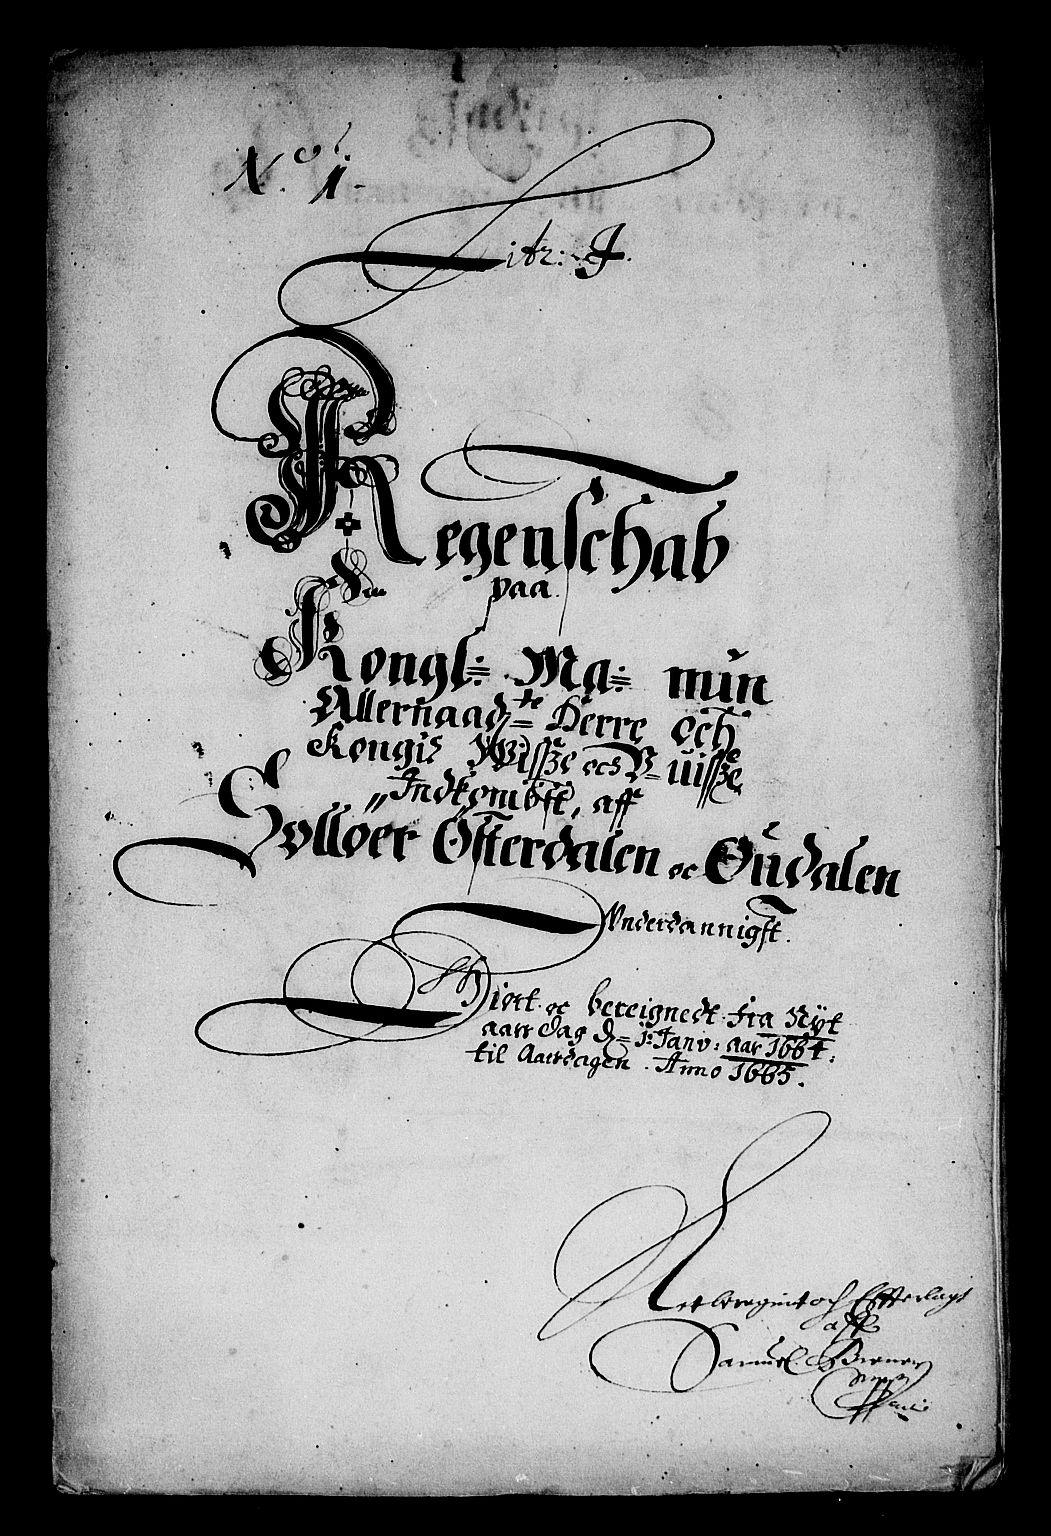 N.o 1.
Litr: A.
Regenschab
paa
Kongl: Ma: min
Allernaadste Herre och
Kongis Wisße och U-uisße
Indkombst, aff
Solløer Østerdalen oc Oudalen
Vnderdannigst.
Giort oc bereignedt fra Nyt
aars dag d= 1: Janv: aar 1664:
til Aarsdagen Anno 1665.
och Effterlagt
aff
Samuel